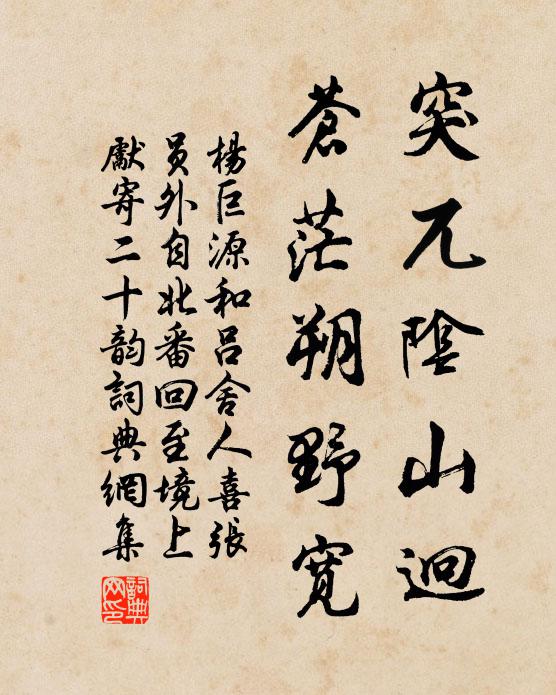 突兀陰山迥
蒼茫朔野寬
楊巨源和呂舍人喜張
員外自北番回至境上
獻寄二十韵詞典網集
詞典
网印